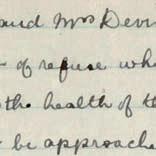 and Mrs Denn
- of refuse whe
the health of th
be approache